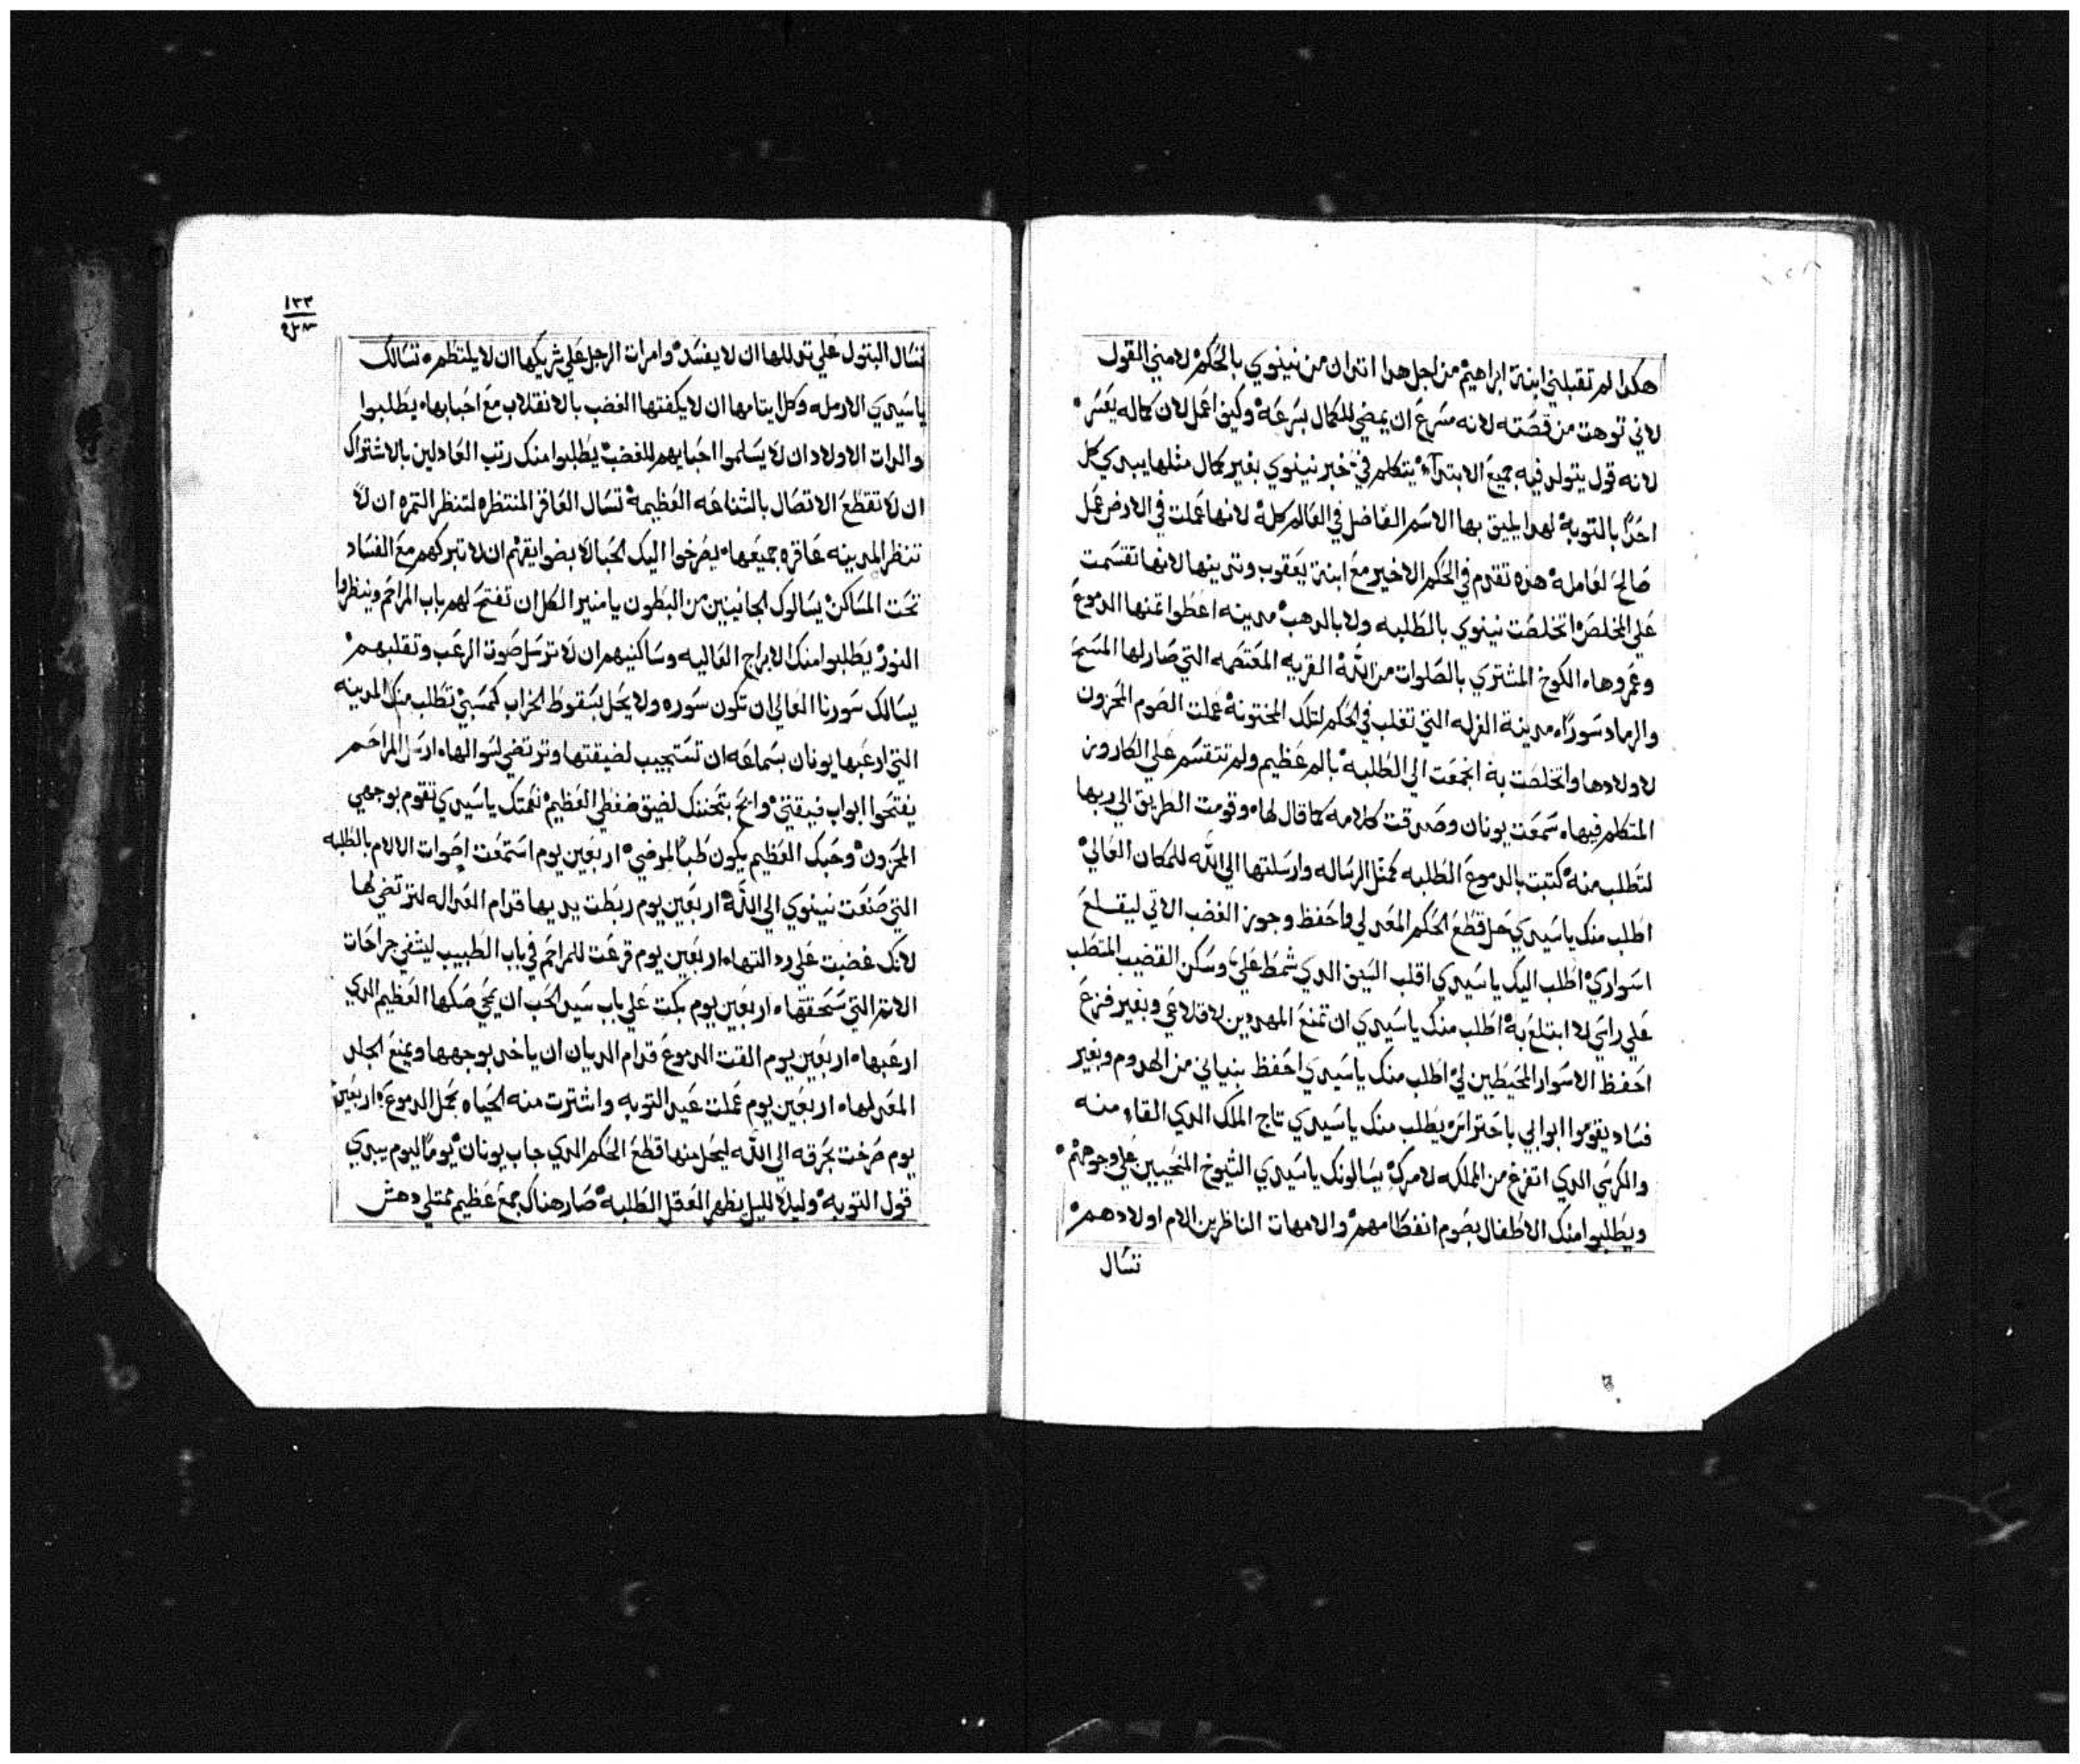 هكدا لم تقبلني ابنة ابراهيم من اجل هدا اتدان من نينوي بالحكم لامني القول
لاني توهت من قصته لانه مسرع ان يمضي للكمال بسرعه وكيف اعمل لان كماله يعسر
لانه قول يتولد فيه جميع الابتدآء يتكلم في خبر نينوي بغير كمال مثلها يبدي كل
احدًا بالتوبه لهدا يليق بها الاسم الفاضل في العالم كله لانها عملت في الارض عمل
صالح لعامله هده تقدم في الحكم الاخير مع ابنة يعقوب وتدينها لانها تقسمت
علي المخلص اتخلصت نينوي بالطلبه ولا بالدهب مدينه اعطوا تمنها الدموع
وعمروها الكوخ المشتري بالصلوات من الله القريه المعتصمه التي صار لها المسح
والرماد سورًا مدينة الغرله التي تغلب في الحكم لتلك المختونه عملت الصوم المحزون
لاولادها واتخلصت به اتجمعت الي الطلبه بالم عظيم ولم تتقسم علي الكاروز
المتكلم فيها سمعت يونان وصدقت كلامه كما قال لها وقومت الطريق الي ربها
لتطلب منه كتبت بالدموع الطلبه كمثل الرساله وارسلتها الي الله للمكان العالي
اطلب منك ياسيدي حل قطع الحكم المعد لي واحفظ وجوز الغضب الاتي ليقلع
اسواري اطلب اليك ياسيدي اقلب السيف الدي شمط علي وسكن القضيب المتطلب
علي راسي لا ابتلع به اطلب منك ياسيدي ان تمنع المهدوين لاقلاعي وبغير فزع
احفظ الاسوار المحيطين لي اطلب منك ياسيدي احفظ بنياني من الهدوم وبغير
فساد يقوموا ابوابي باحتراس يطلب منك ياسيدي تاج الملك الدي القاه منه
والكرسي الدي اتفرغ من الملكه لامرك يسالونك ياسيدي الشيوخ المنحيين علي وجوههم
ويطلبوا منك الاطفال بصوم انفطامهم والامهات الناظرين الام اولادهم
تسال
١٣٣
تسال البتول علي تدللها ان لا يفسد وامرات الرجل علي شريكها ان لا يلتطم تسالك
ياسيدي الارمله وكل يتامها ان لا يكفتها الغضب بالانقلاب مع احبابها يطلبوا
والدات الاولاد ان لا يسلموا احبابهم للغضب يطلبوا منك رتب العادلين بالاشتراك
ان لا تقطع الاتصال بالشناعه العظيمه تسال العاقر المنتظره لتنظر التمره ان لا
تنظر المدينه عاقره جميعها يصرخوا اليك الحبالا بضوايقهم ان لا تبركهم مع الفساد
تحت المساكن يسالوك الجانيين من البطون يامنير الكل ان تفتح لهم باب المراحم وينظروا
النور يطلبوا منك الابراج العاليه وساكنيهم ان لا ترسل صوت الرعب وتقلبهم
يسالك سورنا العالي ان تكون سوره ولا يحل بسقوط الخراب كمسبي تطلب منك المدينه
التي ارعبها يونان بسماعه ان تستجيب لضيقتها وترتضي لسوالها ارسل المراحم
يفتحوا ابواب ضيقتي وابح بتحننك لضيق ضغطي العظيم نعمتك ياسيدي تقوم بوجهي
المحزون وحبك العظيم يكون طبًا لمرضي اربعين يوم استمعت اصوات الالام بالطلبه
التي صنعت نينوي الي الله اربعين يوم ربطت يديها قدام العداله لترتضي لها
لانك غضبت علي ردالتها اربعين يوم قرعت للمراحم في باب الطبيب ليشفي جراحات
الاتم التي سحقتها اربعين يوم بكت علي باب سيد الحب ان يمحي صكها العظيم الدي
ارعبها اربعين يوم القت الدموع قدام الديان ان ياخد بوجهها ويمنع الجلد
المعد لها اربعين يوم عملت عيد التوبه واشترت منه الحياه بحل الدموع اربعين
يوم صرخت بحرقه الي الله ليحل منها قطع الحكم الدي جاب يونان يومًا ليوم يبدي
قول التوبه وليلا لليل يظهر العقل الطلبه صار هناك جمع عظيم ممتلي دهش